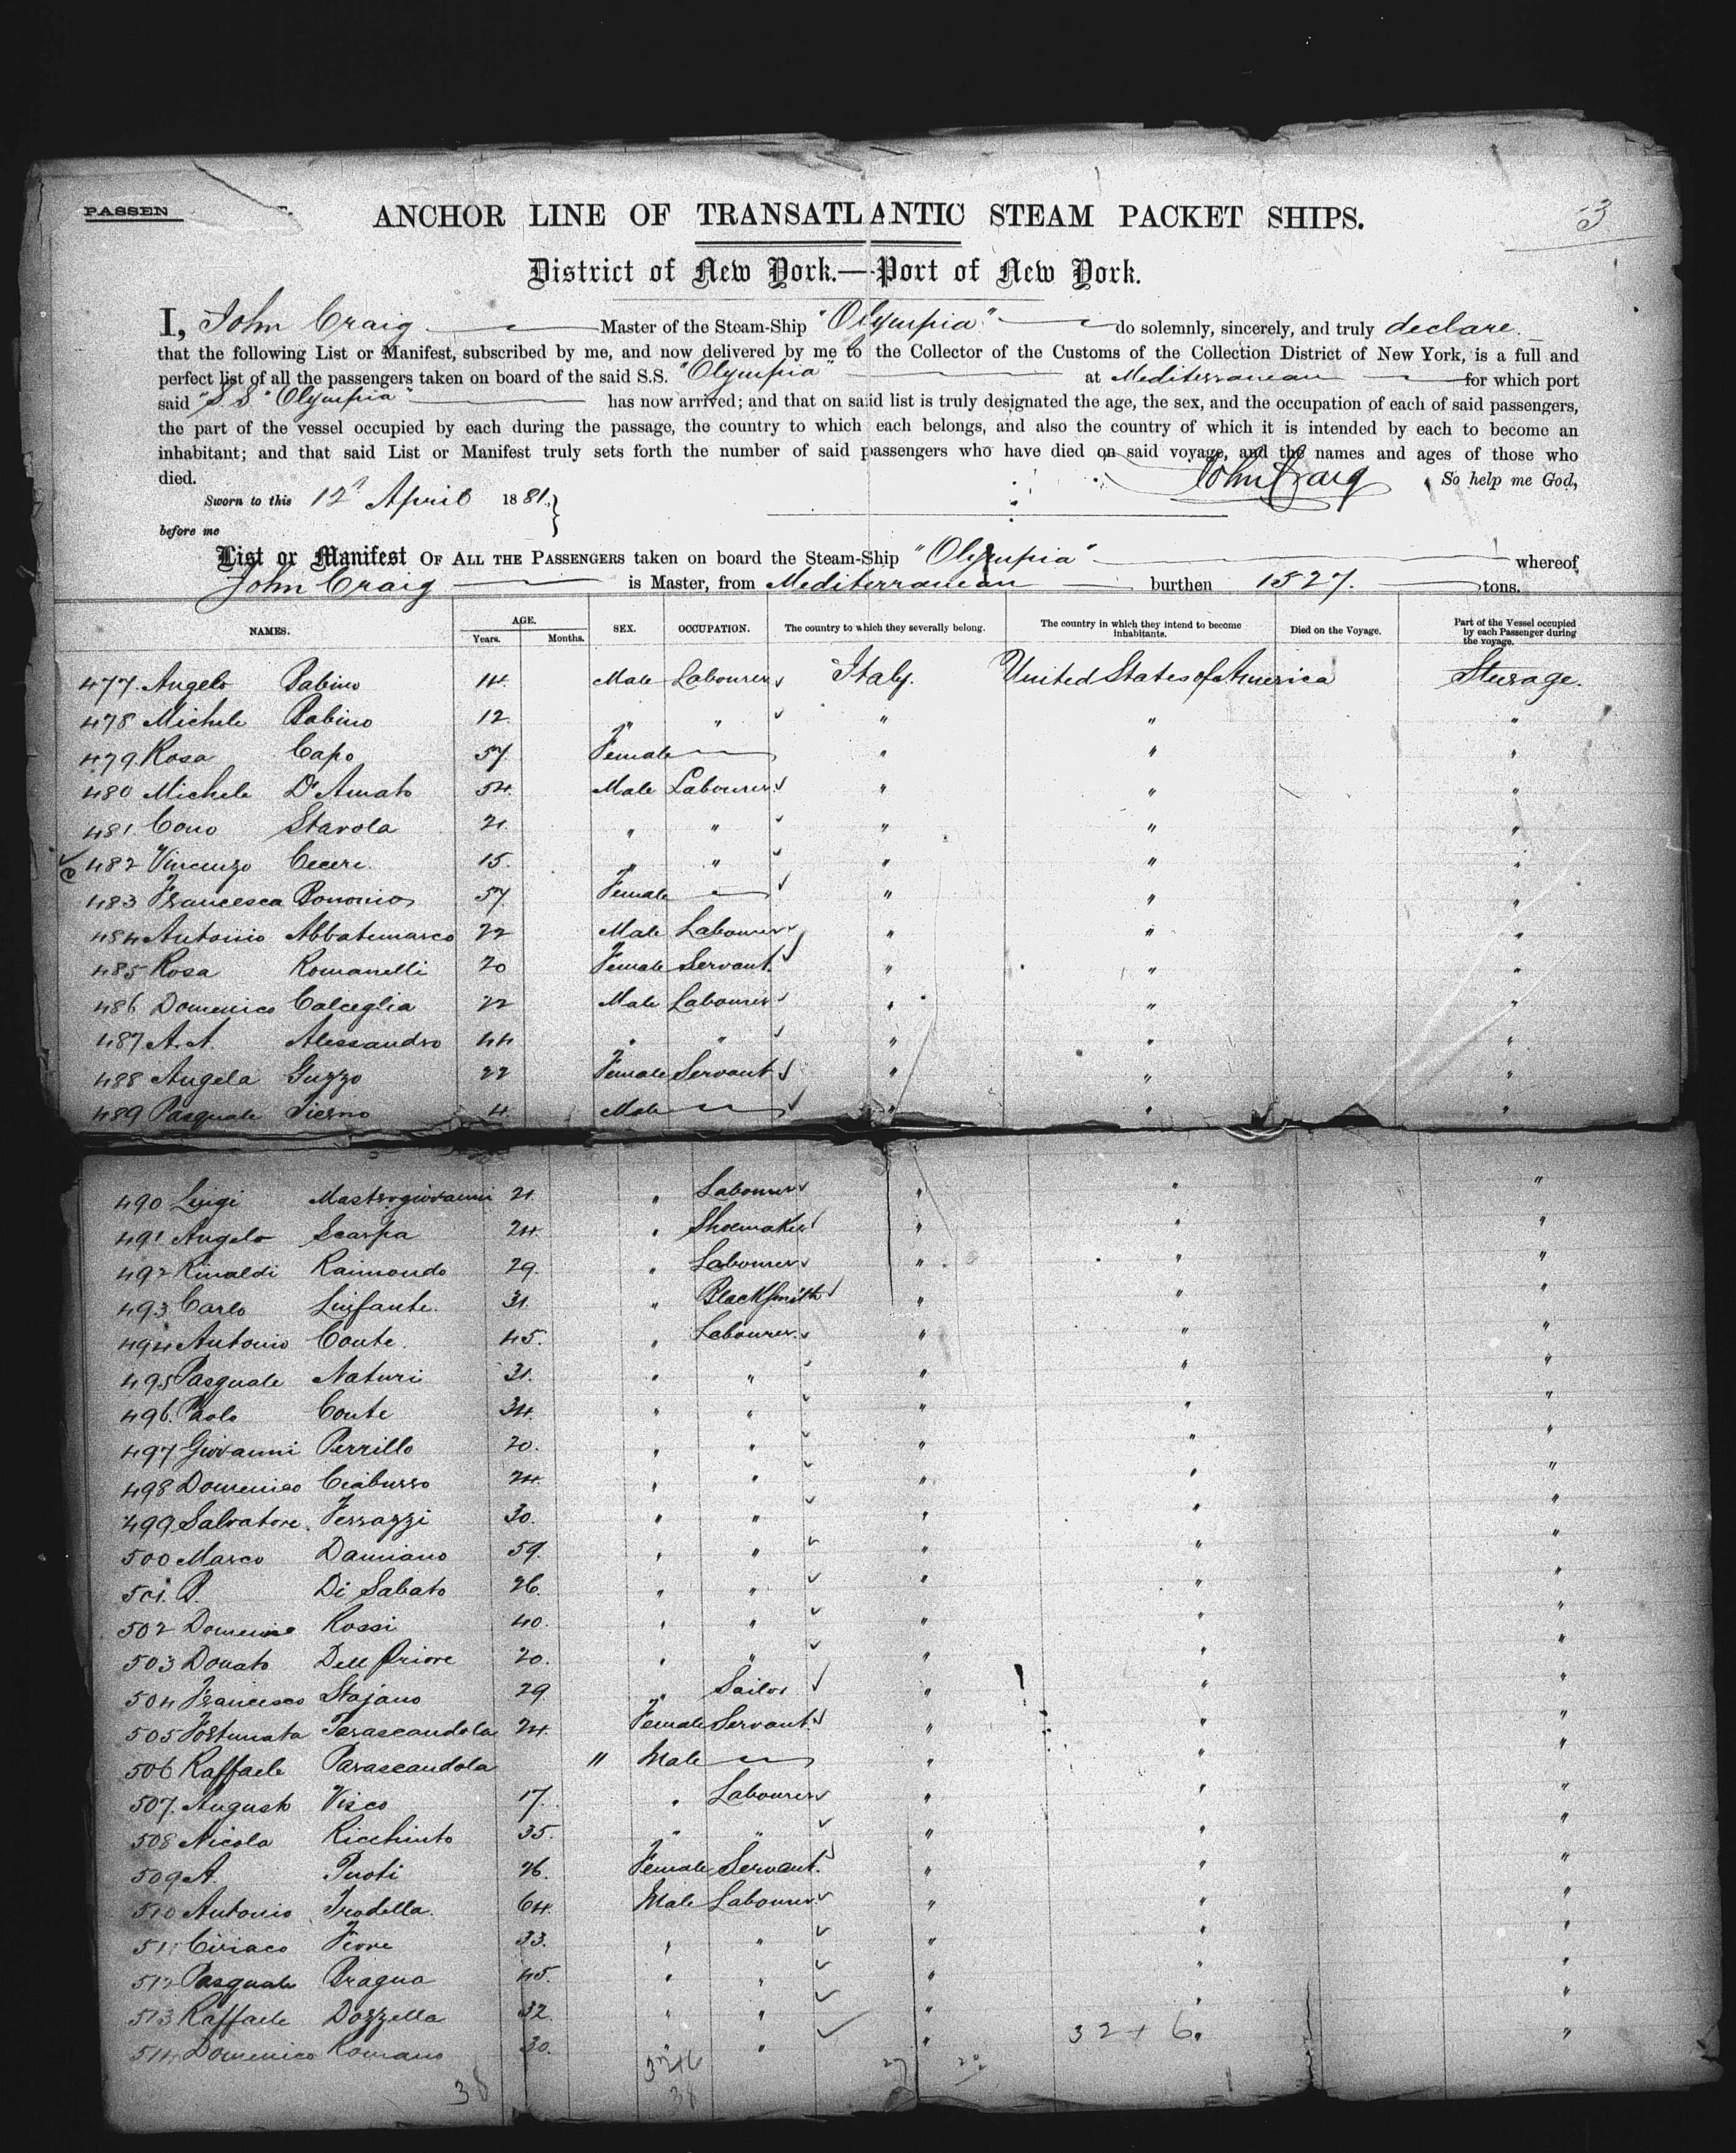 PASSEN
53
ANCHOR LINE OF TRANSATLANTIC STEAM PACKET SHIPS.
District of New York.—Port of New York.
I, John Craig Master of the Steam-Ship "Olympia" do solemnly, sincerely, and truly declare
that the following List or Manifest, subscribed by me, and now delivered by me to the Collector of the Customs of the Collection District of New York, is a full and
perfect list of all the passengers taken on board of the said S.S. "Olympia" at Mediterranean for which port
said "S.S. "Olympia" has now arrived; and that on said list is truly designated the age, the sex, and the occupation of each of said passengers,
the part of the vessel occupied by each during the passage, the country to which each belongs, and also the country of which it is intended by each to become an
inhabitant; and that said List or Manifest truly sets forth the number of said passengers who have died on said voyage, and the names and ages of those who
died. John Craig So help me God,
Sworn to this 12" April 1881.
before me
List or Manifest OF ALL THE PASSENGERS taken on board the Steam-Ship "Olympia" whereof
John Craig is Master, from Mediterranean burthen 1527. tons.
NAMES. AGE. Years. Months. SEX. OCCUPATION. The country to which they severally belong. The country in which they intend to become inhabitants. Died on the Voyage. Part of the Vessel occupied by each Passenger during the voyage.
477. Angelo Babino 14. Male Labourer Italy. United States of America Steerage.
478 Michele Babino 12. " " " " "
479 Rosa Capo 57. Female " " "
480 Michele D'Amato 54. Male Labourer " " "
481 Cono Stavola 21. " " " " "
482 Vincenzo Cecere. 15. " " " " "
483 Francesca Bononio 57. Female " " "
484 Antonio Abbatemarco 22 Male Labourer " " "
485 Rosa Romanelli 20 Female Servant " " "
486 Domenico Calceglia 22 Male Labourer " " "
487 A.A. Alessandro 44 " " " " "
488 Angela Guzzo 22 Female Servant " " "
489 Pasquale Tierno 4. Male " " "
490 Luigi Mastrogiovanni 21. " Labourer " " "
491 Angelo Scarpa 24. " Shoemaker " " "
492 Rinaldi Raimondo 29. " Labourer " " "
493. Carlo Linfante. 31. " Blacksmith " " "
494 Antonio Conte. 45. " Labourer " " "
495 Pasquale Naturi 31. " " " " "
496. Paolo Conte 34. " " " " "
497 Giovanni Perrillo 20. " " " " "
498 Domenico Ciaburro 24. " " " " "
499 Salvatore Ferrazzi 30. " " " " "
500 Marco Damiano 59. " " " " "
501. P. Di Sabato 26. " " " " "
502 Domenico Rossi 40. " " " " "
503 Donato Dell Priore 20. " " " " "
504 Francesco Stajano 29 " Sailor " " "
505 Fortunata Parascandola 24. Female Servant " " "
506 Raffaele Parascandola " Male " " "
507. Augusto Visco 17. " Labourer " " "
508 Nicola Ricchiuto 35. " " " " "
509 A. Puoti 26. Female Servant. " " "
510 Antonio Trodella. 64. Male Labourer " " "
511 Ciriaco Fiore 33. " " " " "
512 Pasquale Bragno 45. " " " " "
513 Raffaele Dozzella 32. " " " " "
514 Domenico Romano 30. " " " "
32 + 6.
32+6 27 20
38 38